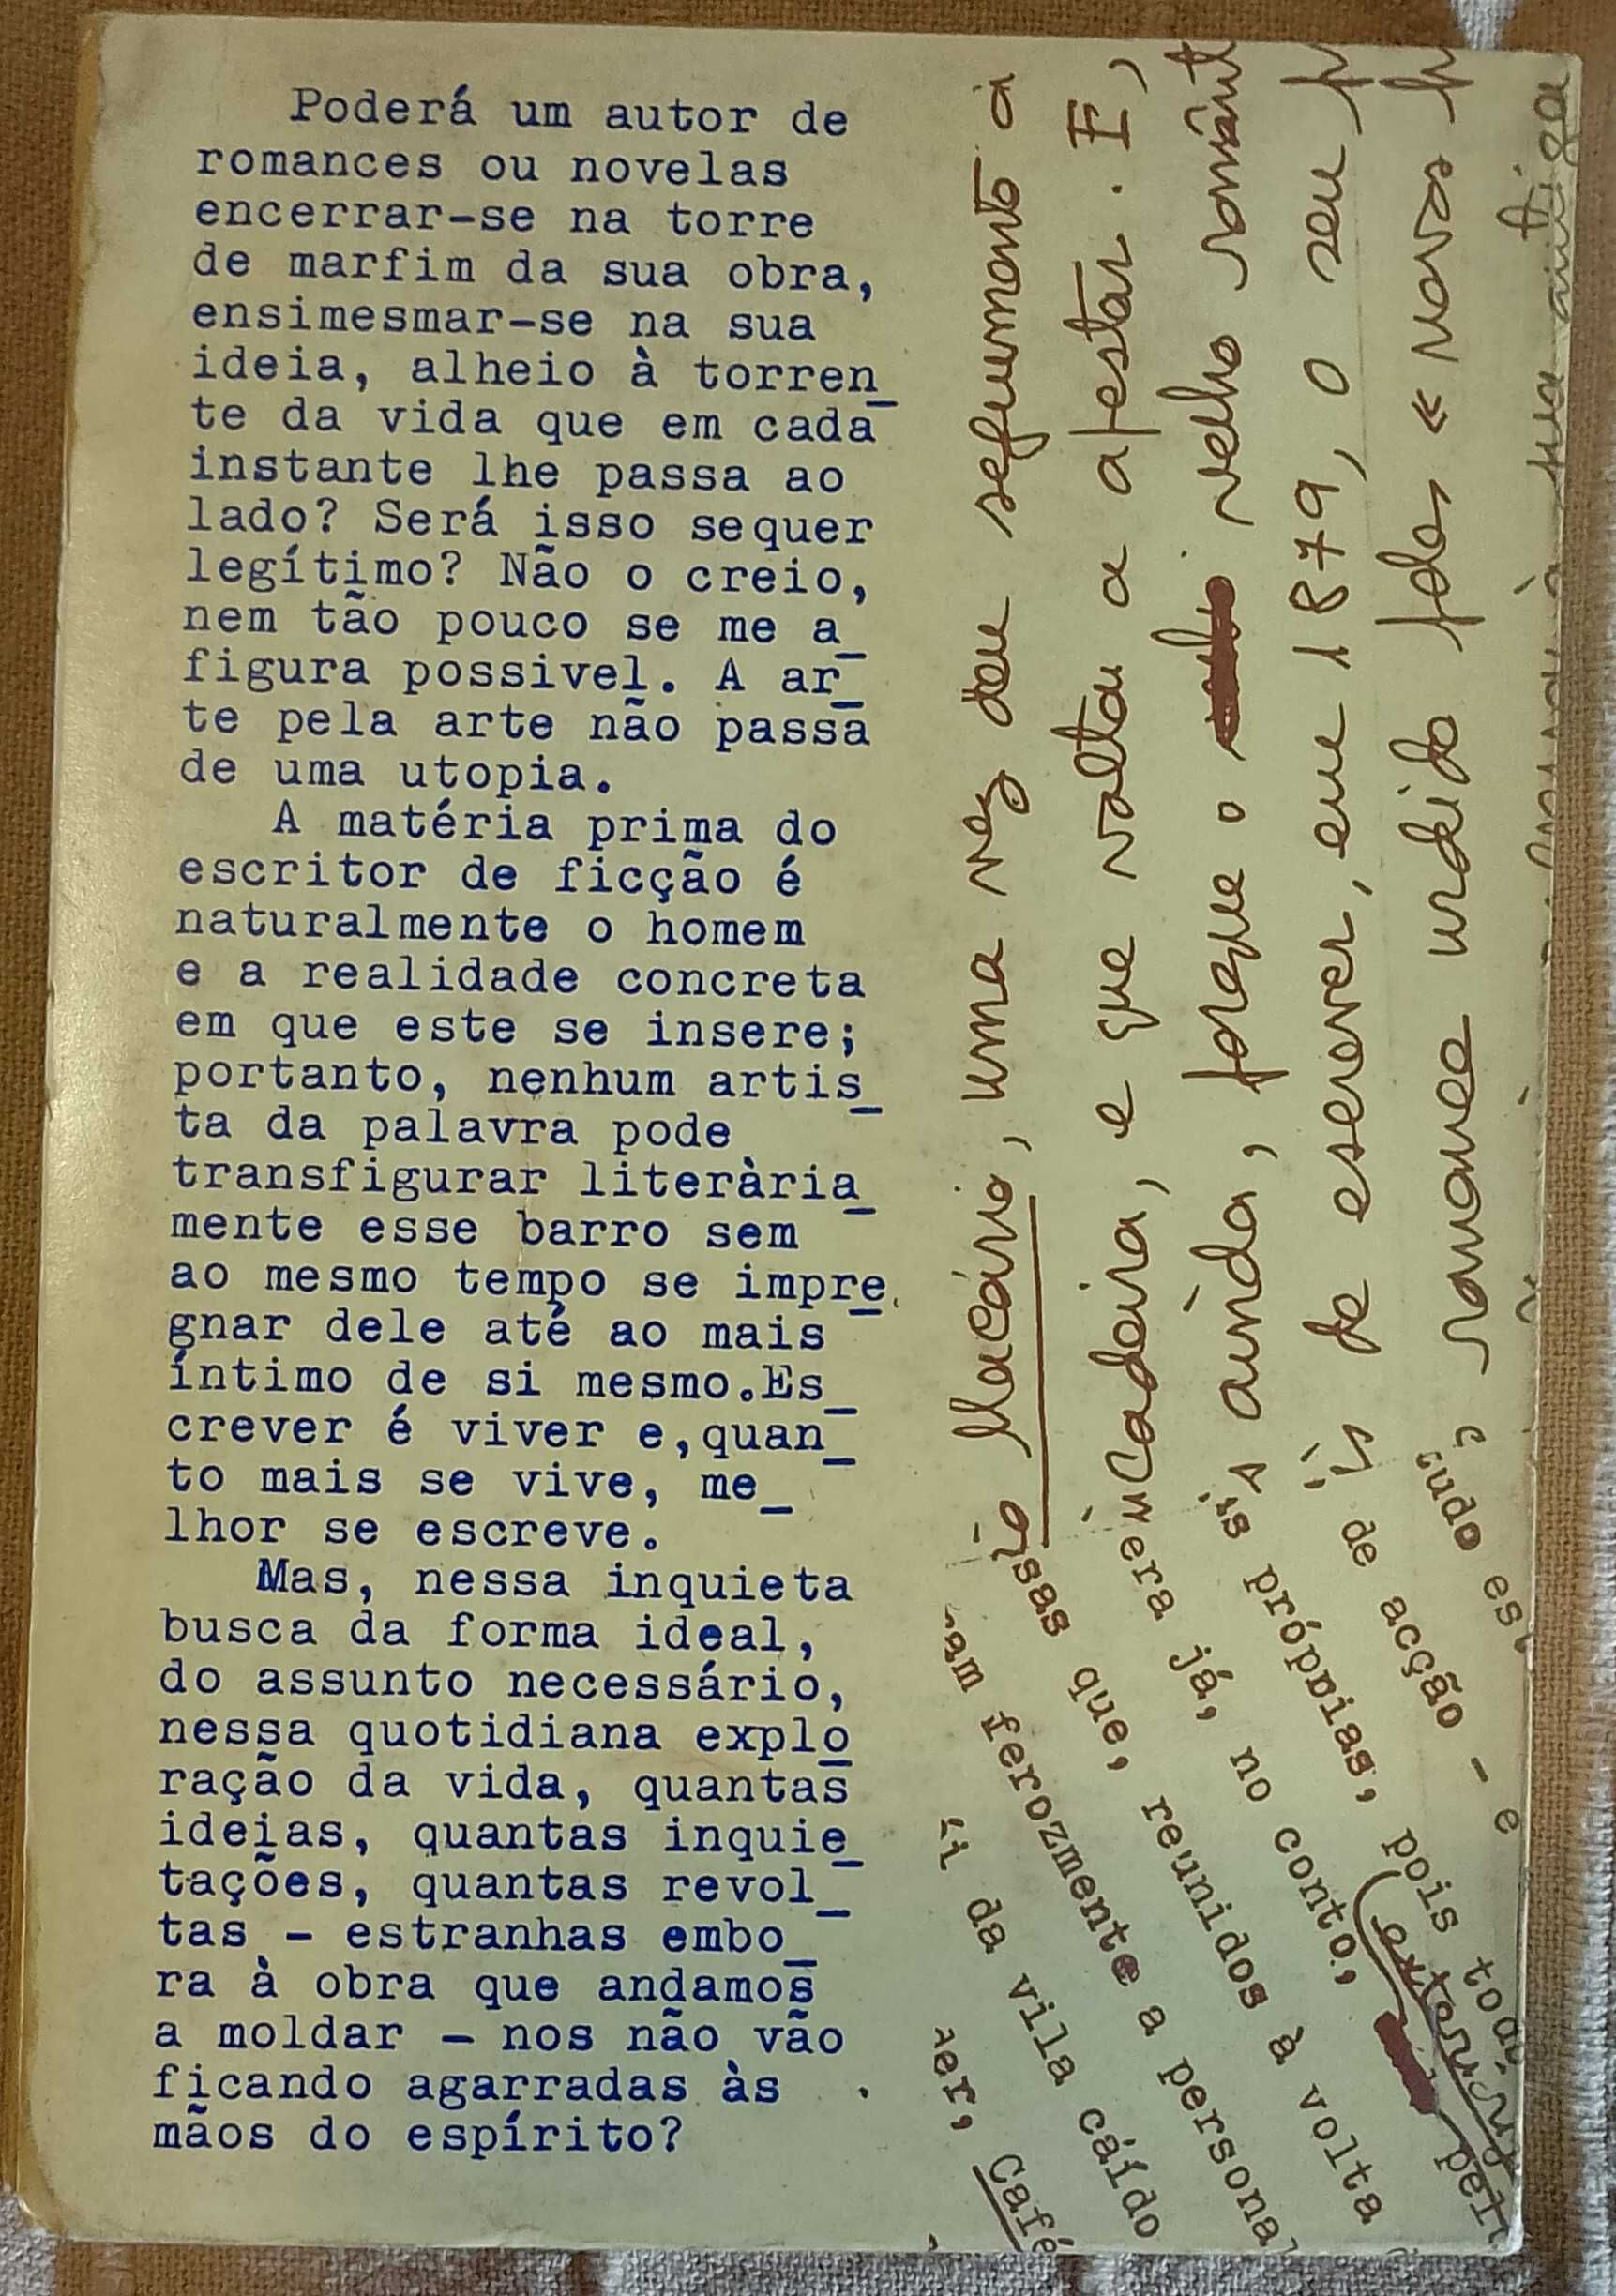 Poderá um autor de
romances ou novelas
encerrar-se na torre
de marfim da sua obra,
ensimesmar-se na sua
ideia, alheio à torren_
te da vida que em cada
instante lhe passa ao
lado? Será isso sequer
legítimo? Não o creio,
nem tão pouco se me a_
figura possivel. A ar_
te pela arte não passa
de uma utopia.
A matéria prima do
escritor de ficção é
naturalmente o homem
e a realidade concreta
em que este se insere;
portanto, nenhum artis_
ta da palavra pode
transfigurar literària_
mente esse barro sem
ao mesmo tempo se impre_
gnar dele até ao mais
íntimo de si mesmo.Es_
crever é viver e,quan_
to mais se vive, me_
lhor se escreve.
Mas, nessa inquieta
busca da forma ideal,
do assunto necessário,
nessa quotidiana explo_
ração da vida, quantas
ideias, quantas inquie_
tações, quantas revol_
tas - estranhas embo_
ra à obra que andamos
a moldar - nos não vão
ficando agarradas às
mãos do espírito?
Macário, uma vez deu seguimento a
cadeira, e que voltou a afastar. E,
ainda, porque o velho românt
de escrever, em 1879, o seu
romance urdido pelos « novos
sua antiga
sas que, reunidos à volta
era já, no conto,
s próprias, pois toda
de acção - e
tudo es
am ferozmente a personal
i da vila caído
er, Café
pel